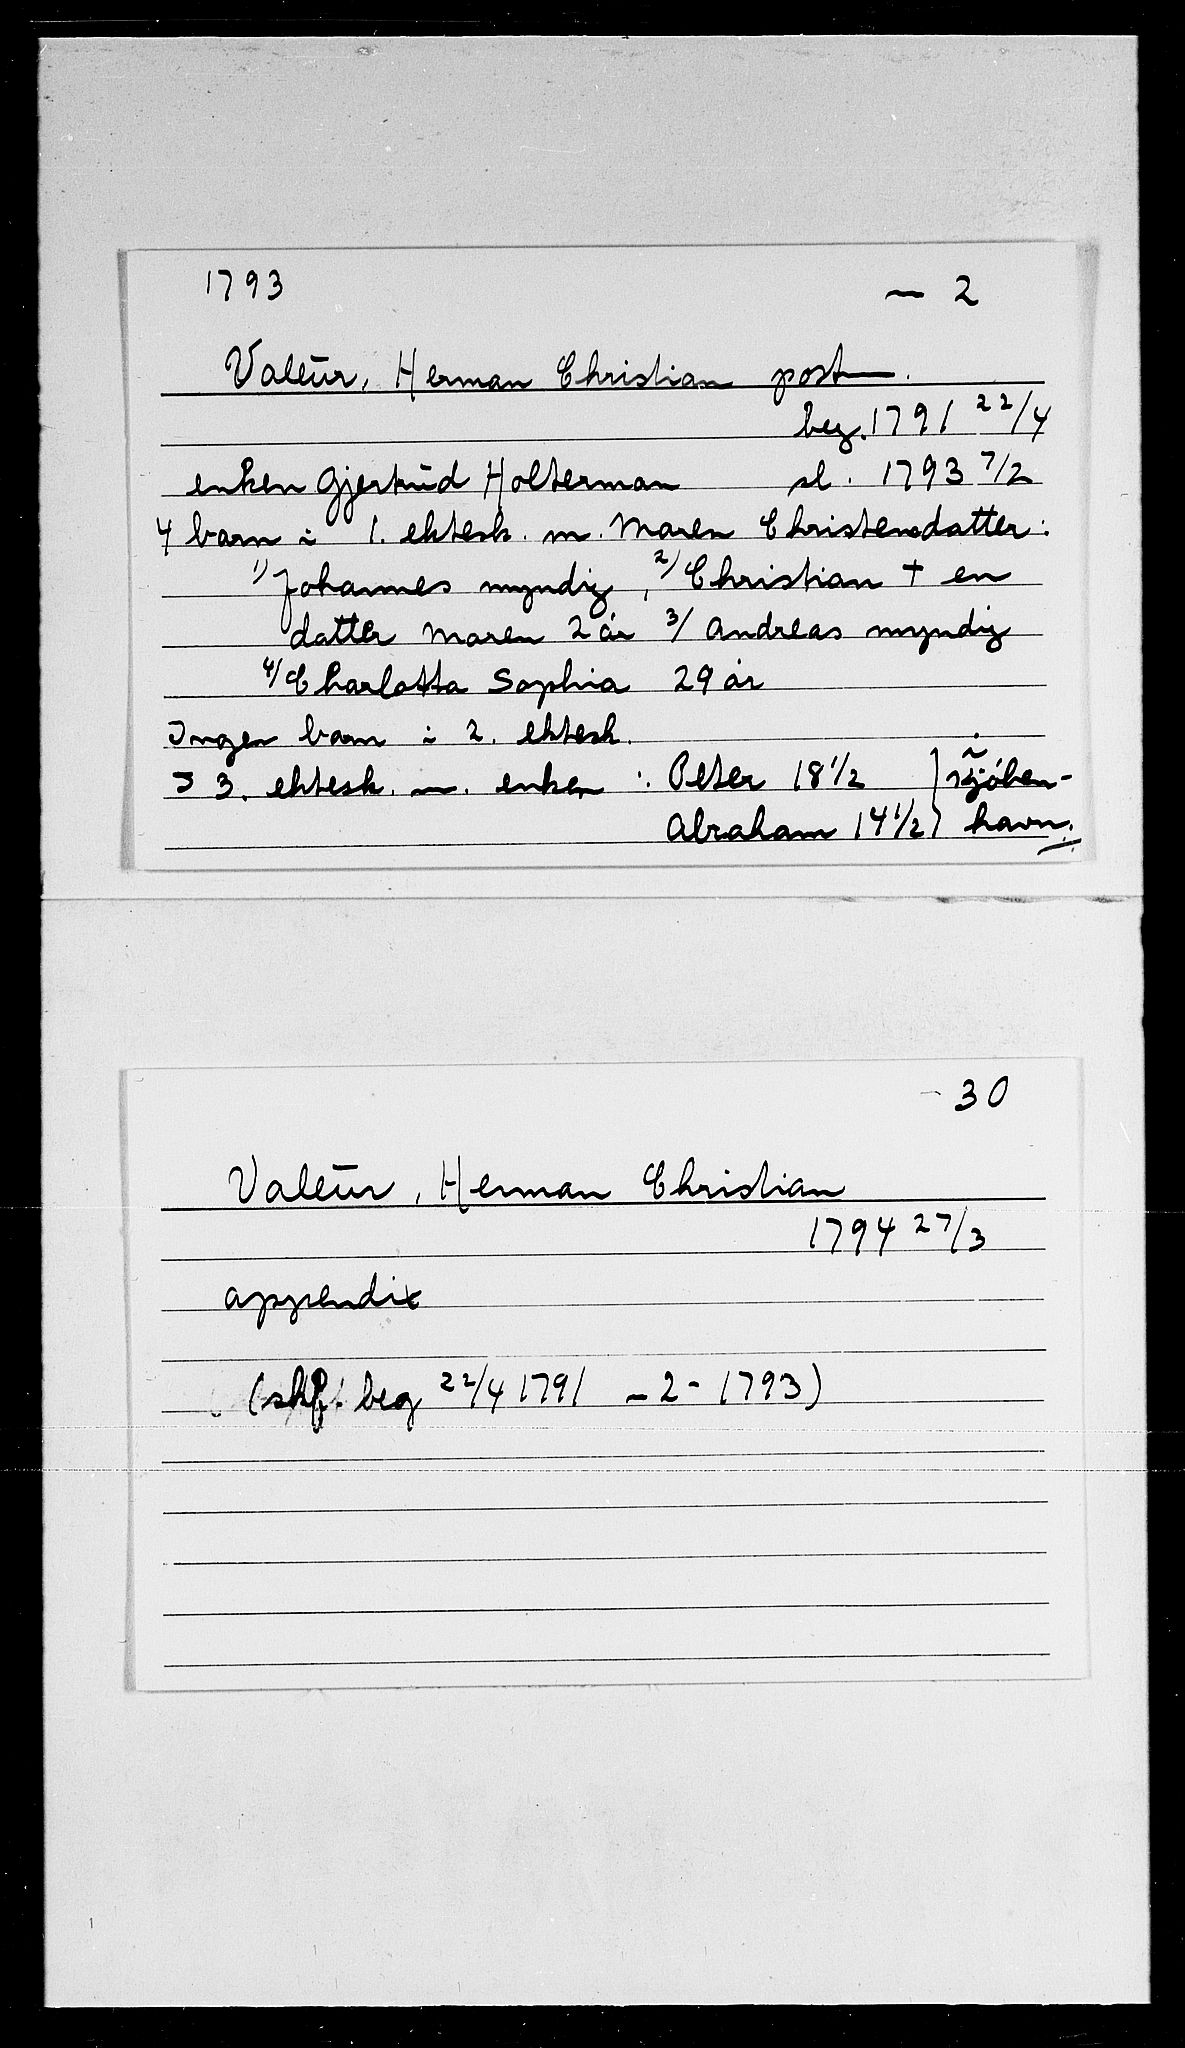 1793 — 2
Valeur, Herman Christian post.
beg. 1791 22/4
enken Gjertrud Holterman sl. 1793 7/2
4 barn i 1. ektesk. m. Maren Christensdatter:
1) Johannes myndig, 2/ Christian † en
datter Maren 2 år 3/ Andreas myndig
4/ Charlotta Sophia 29 år
Ingen barn i 2. ektesk.
I 3. ektesk. m. enken: Peter 18 1/2 } i Kjöben-
Abraham 14 1/2 } havn.
- 30
Valeur, Herman Christian
1794 27/3
appendix
(skf. beg 22/4 1791 - 2 - 1793)